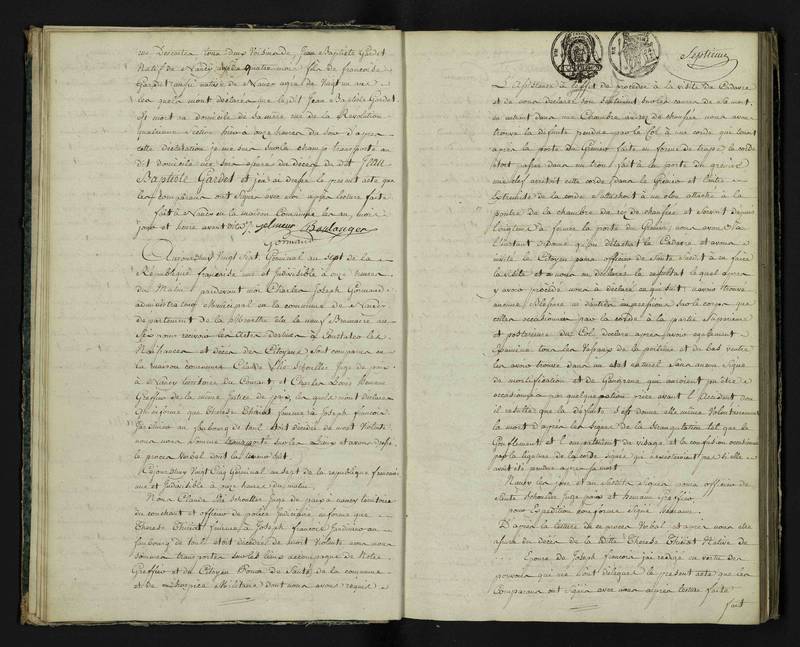 rue Descartes tous deux Voisins de Jean Baptiste Gardet
Natif de Nancy agé de quatre mois fils de françoise
Gardet aussi native de Nancy agee de Vingt un ans
les quels mont déclaré que ledit Jean Baptiste Gardet
est mort au domicile de sa mere rue de la Revolution
quatrieme section hier a onze heures du soir d'apres
cette déclaration je me suis sur le champ transporté au
dit domicile me suis assuré du deces du dit Jean
Baptiste Gardet et j'en ai dressé le present acte que
les comparans ont signé avec moi apres lecture faite
fait à Nancy en la maison Commune les an, mois
jour et heure avant dits Boulanger
Gormand
Aujourd'huy Vingt Sept Germinal an sept de la
République française une et Indivisible à onze heures
du Matin pardevant moi Charles Joseph Gormand
administrateur Municipal en la commune de Nancy
departement de la Meurthe élu le neuf Brumaire an
Six pour recevoir les actes destinés à Constater les
Naissances et deces des Citoyens Sont comparus en
la maison commune Claude Juge de paix
à Nancy territoire du Couchant et Charles Louis
Greffier de la meme Justice de paix les quels mont declaré
que informé que Therese Thiriot femme à Joseph françois
Jardinier au faubourg de toul etoit décédée de mort Violente
nous nous sommes transporté sur les Lieux et avons dressé
le procès Verbal dont la teneur suit.
Aujourd'huy Vingt Cinq Germinal an sept de la republique françoise
une et Indivisible à onze heures du matin
Nous Claude Juge de paix à nancy territoire
du couchant et officier de police Judiciaire informé que
Therese Thiriot femme à Joseph françois Jardinier au
faubourg de toul etoit décédée de mort Violente nous nous
sommes transporté sur les lieux accompagné de Notre
Greffier et du Citoyen de Santé de la commune
et de l'hospice Militaire dont nous avons requis
Septieme
L'Assistance à l'effet de procéder à la visite du Cadavre
et de nous déclarer son sentiment sur les causes de la mort,
en entrant dans une Chambre au rez de chaussée nous avons
trouvé la defunte pendue par le Col à une corde qui tenoit
après la porte du Grenier faite en forme de trape la corde
étoit passée dans un trou fait à la porte du grenier
une clef arretoit cette corde dans le Grenier et l'autre
extremité de la corde s'attachoit à un clou attaché à la
poutre de la chambre du rez de chaussée et servoit depuis
longtems à fermer la porte du Grenier, nous avons à
l'instant donné qu'on détachat le Cadavre et avons
invité le Citoyen officier de Santé susdit à en faire
la visite et à nous en déclarer le resultat le quel apres
y avoir procédé nous à déclaré ce qui suit n'avoir trouvé
aucunes blessures ou d'autres impressions sur le corps que
celles occasionnées par la corde à la partie Superieure
et posterieure du Col, declare apres avoir egalement
Examiné tous les Visceres de la poitrine et du bas ventre
les avoir trouvé dans un état naturel sans aucun Signe
de mortification et de Gangrene qui auroient pu être
occasionnés par quelque poison pris avant l'accident d'où
il resulte que la défunte s'est donné elle même Volontairement
la mort d'apres les Signes de la Strangulation tel que le
Gonflement et l'empatement du visage et la confusion occasionnée
par la ligature de la corde signes qui n'existeroient pas si elle
avoit été pendue apres sa mort
Nancy les jour et an susdits Signés officier de
Santé Juge de paix et Greffier
pour Expédition conforme Signé
D'apres la lecture de ce procès Verbal et apres nous être
assuré du deces de la Ditte Therese Thiriot Native de
Epouse de Joseph françois j'ai rédigé en vertu des
pouvoirs qui me sont délégués le présent acte que les
Comparans ont signé avec nous apres lecture faite
fait